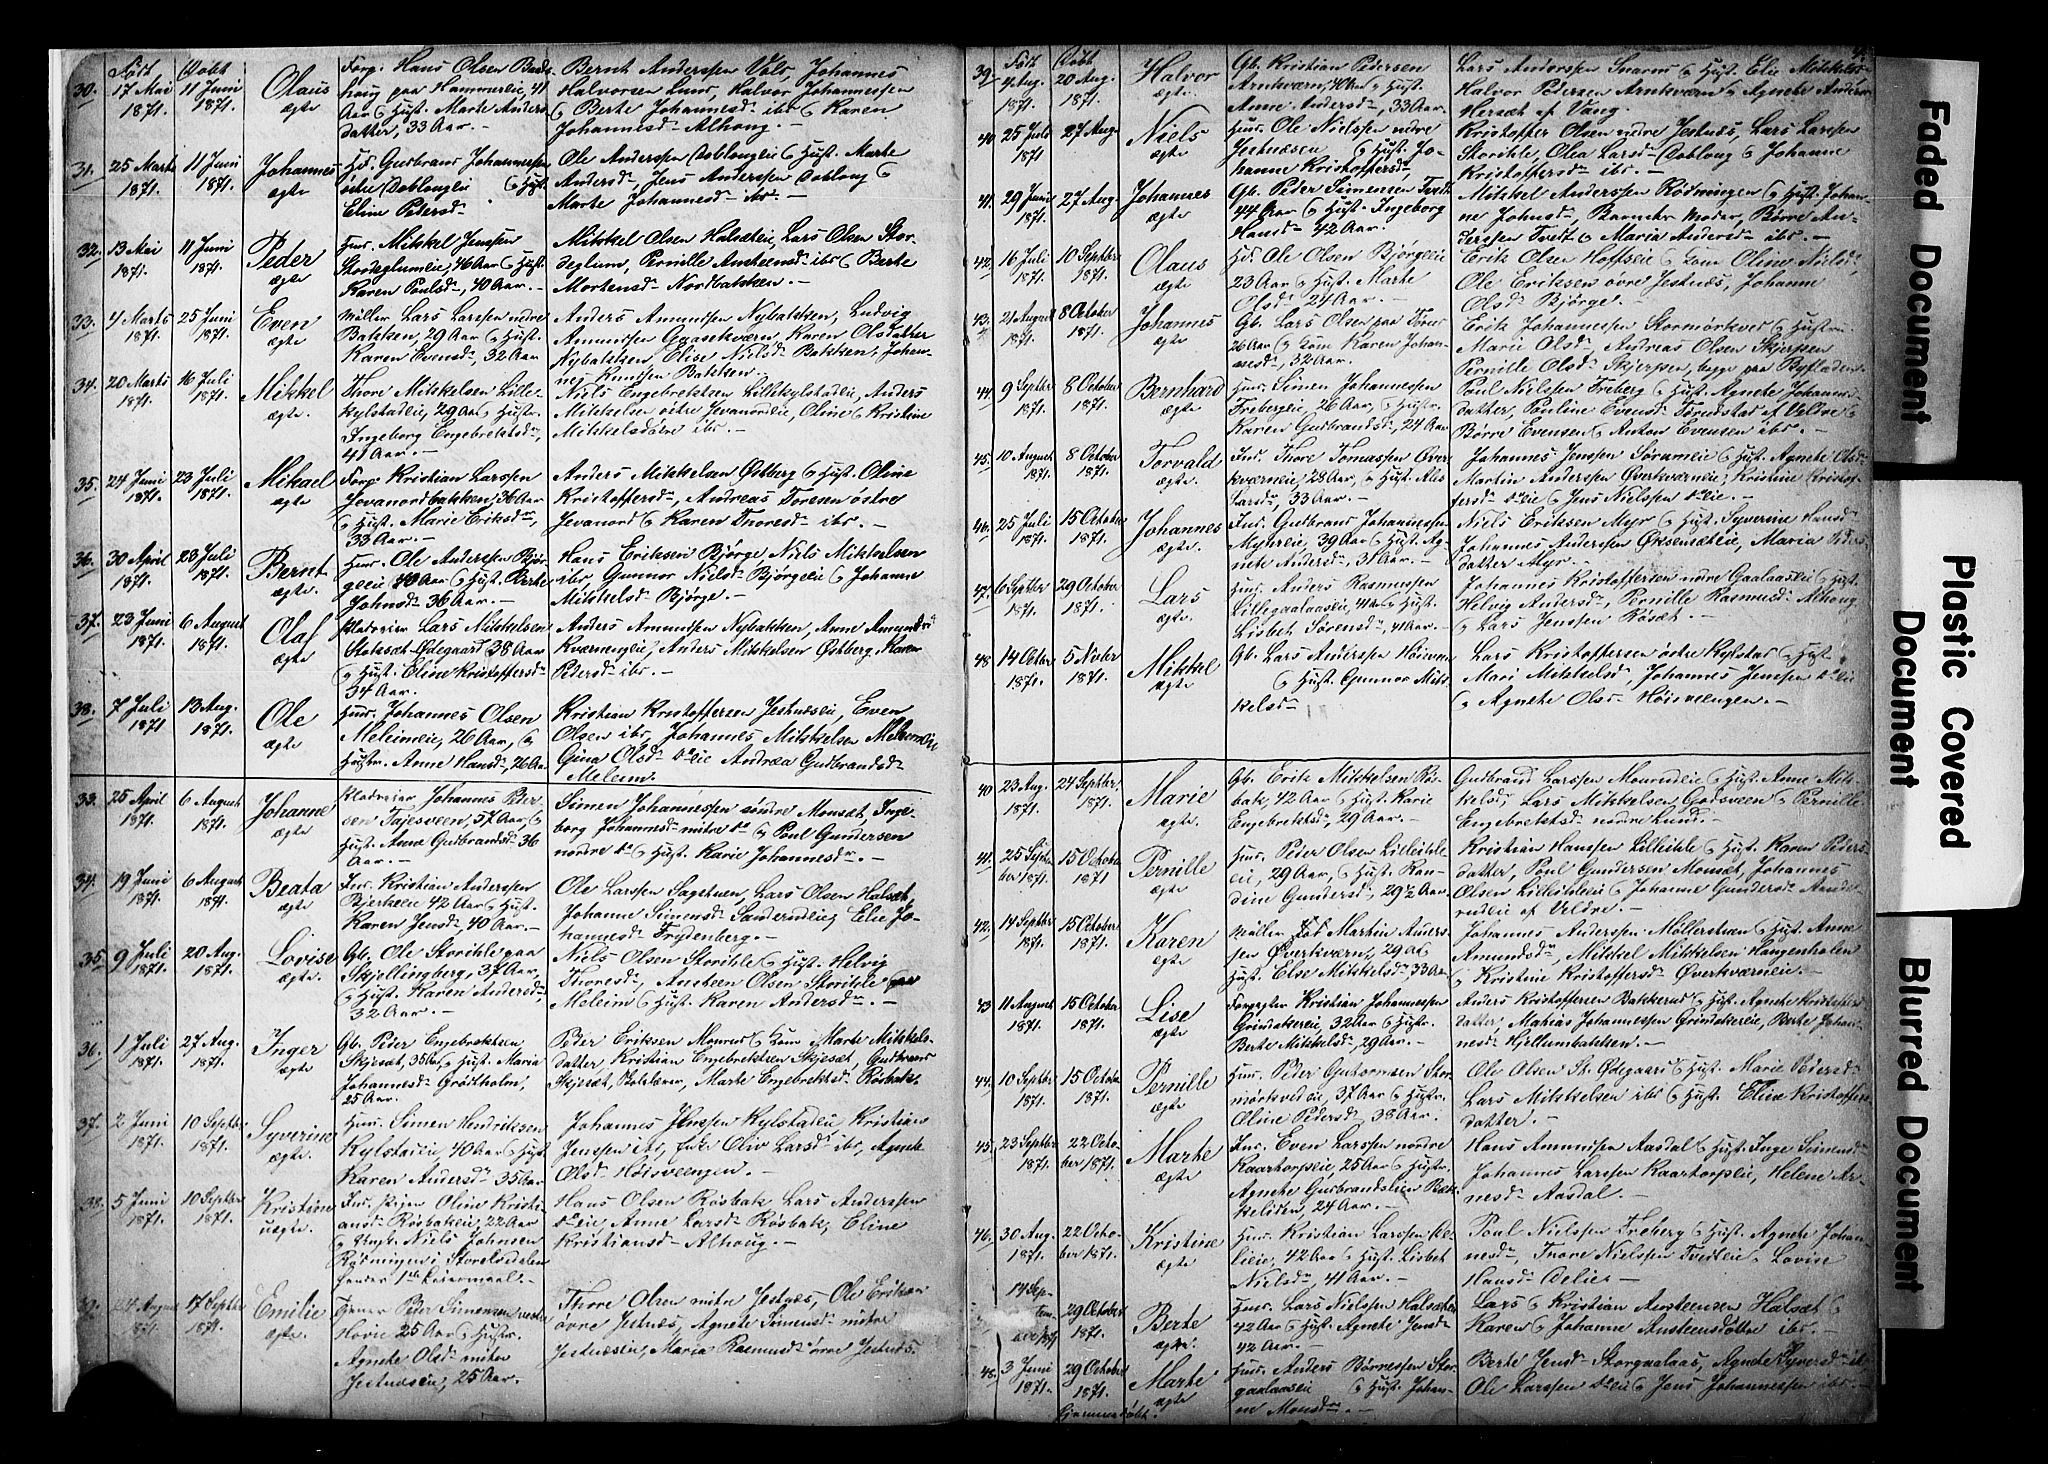 Født Døbt
30. 17 Mai 1871. 11 Juni 1871. Olaus ægte
Forp. Hans Olsen
haug paa Hammerlie, 41
Aar & Hust. Marte Anders
datter, 33 Aar. –
Bernt Anderssen Vols, Johannes
Halvorsen Lund, Halvor Johannessen
& Berte Johannesd. ibs & Karen
Johannesd. Alhoug. –
31. 25 Marts 1871. 11 Juni 1871. Johannes ægte
Hd. Gudbrand Johannessen
østre Doblouglie & Hust.
Eline Pedersd. –
Ole Anderssen Doblouglie & Hust. Marte
Andersd., Jens Anderssen Dobloug &
Marte Johannesd. ibs. –
32. 13 Mai 1871. 11 Juni 1871. Peder ægte
Huus. Mikkel Jenssen
Stordeglumeie, 46 Aar & Hust.
Karen Poulsd., 40 Aar. –
Mikkel Olsen Halsetlie, Lars Olsen Stor-
deglum, Pernille Amtsensd. ibs & Berte
Mortensd. Nordbakken. –
33. 4 Marts 1871. 25 Juni 1871. Even ægte
Møller Lars Larssen nedre
Bakken, 29 Aar & Hustr.
Karen Evensd., 32 Aar
Anders Amundsen Nybakken, Ludvig
Amundsen Gaasekværn Karen Olsdatter
Nybakken Elise Nielsd. Bakken, Johan-
nes Knudsen Bakken. –
34. 20 Marts 1871. 16 Juli 1871. Mikkel ægte
Thore Mikkelsen Lille-
kylstadlie, 29 Aar & Hustr.
Ingeborg Engebretsd.,
41 Aar. –
Niels Engebretsen Lillekylstadlie, Anders
Mikkelsen østre Jevanordlie, Oline & Kristine
Mikkelsdøtre ibs. –
35. 24 Juni 1871. 23 Juli 1871. Mikael ægte
Forp. Kristian Larssen
Jevanordbakken, 36 Aar
& Hust. Marie Eriksd.,
33 Aar. –
Anders Mikkelsen Østberg & Hust. Oline
Kristoffersd., Andreas Toresen østre
Jevanord & Karen Thoresd. ibs. –
36. 30 April 1871. 23 Juli 1871. Bernt ægte
Huus. Ole Anderssen Bjør-
gelie Aar & Hust. Berte
Johnsd. 36 Aar. –
Hans Eriksen Bjørge Niels Mikkelsen
ibs, Gunnor Nielsd. Bjørgelie & Johanne
Mikkelsd. Bjørge. –
37. 23 Juni 1871. 6 August 1871. Olaf ægte
Lars Mikkelsen
Stokset-Ødegaard 38 Aar
& Hust. Eline Kristoffersd.
34 Aar.
Anders Amundsen Nybakken, Anne Amundsd.
Kværnenglie, Anders Mikkelsen Østberg, Karen
Pedersd. ibs. –
38. 7 Juli 1871 13 Aug. 1871. Ole ægte
Huus. Johannes Olsen
Meleimeie, 26 Aar, &
Hustr. Anne Hansd., 26 Aar
Kristian Kristoffersen Jestnæslie, Even
Olsen ibs, Johannes Mikkelsen Meleimeie
Gina Olsd. do eie Andrea Gudbrandsd.
Meleim. –
33. 25 April 1871. 6 August 1871. Johanne ægte
Johannes Peder-
sen Tajesveen, 37 Aar &
Hust. Anne Gudbrandsd. 36
Aar. –
Simen Johannessen søndre Mouset, Inge-
borg Johannesd. mitre do & Poul Gundersen
nordre do & Hust. Karie Johannesd. –
34. 19 Juni 1871. 6 August 1871. Beata ægte
Ins. Kristian Anderssen
Bjerkelie 42 Aar & Hust.
Karen Jensd., 40 Aar. –
Ole Larssen Sagstuen, Lars Olsen Halset
Johanne Simensd. Sanderudlie, Elie Jo-
hannesd. Frydenberg. –
35. 9 Juli 1871. 20 Aug. 1871. Lovise ægte
Gb. Ole Storihle paa
Skjellingberg, 37 Aar,
& Hust. Karen Andersd.,
32 Aar. –
Niels Olsen Storihle & Hust. Helvig
Thoresd., Austeen Olsen Storihle paa
Meleim & Hust. Karen Andersd. –
36. 1 Juli 1871. 27 Aug. 1871. Inger ægte
Gb. Peder Engebretsen,
Skjeset, 35 Aar & Hust. Maria
Johannesd. Grøtholm,
25 Aar.
Peder Eriksen Mourud & Marte Mikkels-
datter, Kristian Engebretsen Skjeset, Gudbrand
Skjeset, Skolelærer, Marte Engebretsd. Rosbak.
37. 2 Juni 1871. 10 Septbr 1871. Syverine ægte
Huus. Simen Hendriksen
Kylstadeie, 40 Aar & Hust.
Karen Andersd. 35 Aar
Johannes Jenssen Kylstadeie Kristian
Jenssen ibs, Oliv Larsd. ibs, Agnete
Olsd. Høisveengen. –
38. 5 Juni 1871. 10 Septbr 1871. Kristine uægte
Ins. Pigen Oline Kristi-
ansd. Rosbakeie, 22 Aar
& Ungk. Niels Johnsen
Rødningen i Storelvdalen
hendes 1ste Leiermaal. –
Hans Olsen Rosbak Lars Anderssen
do eie, Anne Larsd. Rosbak, Eline
Kristiansd. Alhoug. –
39. 24 August 1871. 17 Septbr 1871. Emilie ægte
Peder Simensen
Hovie 25 Aar & Hustr.
Agnete Olsd. mitre
Jestnæseie, 25 Aar. –
Thore Olsen mitre Jestnæs, Ole Eriksen
øvre Jestnæs, Agnete Simensd. mitre
Jestnæseie, Maria Rasmusd. øvre Jestnæs.
Født Døbt
39. 4 Aug. 1871. 20 Aug. 1871. Halvor ægte
Gb. Kristian Pedersen
Arnkværn, & Hust.
Anne Andersd., 33 Aar.
Lars Anderssen Snarud & Hust. Elie Mikkelsd.
Halvor Pedersen Arnkværn & Agnete Andersd.
Herset af Vang.
40. 25 Juli 1871 27 Aug. Niels ægte
Huus. Ole Nielssen nedre
Jestnæseie & Hust. Jo-
hanne Kristoffersd.,
Kristoffer Olsen nedre Jestnæs, Lars Larssen
Storihle, Olea Larsd. Doblong & Johanne
Kristoffersd. ibs. –
41. 29 Juni 1871. 27 Aug. Johannes ægte
Gb. Peder Simensen Tvedt
44 Aar & Hust. Ingeborg
Hansd. 42 Aar.
Mikkel Anderssen Rødningen & Hust. Johan-
ne Johnsd., Barnets Moder, Børre An-
derssen Tvedt & Maria Andersd. ibs. –
42. 16 Juli 1871. 10 Septbr 1871. Olaus ægte
Hd. Ole Olsen Bjørgelie
23 Aar & Hust. Marte
Olsd., 24 Aar. –
Erik Olsen Hoffslie & Oline Nielsd.,
Ole Eriksen øvre Jestnæs, Johanne
Olsd. Bjørge. –
43. 21 August 1871. 8 October 1871. Johannes ægte
Gb. Lars Olsen paa
26 Aar & Karen Johan-
nesd., 32 Aar.
Erik Johannessen Stormørkved & Hustru
Marie Olsd. Andreas Olsen Skjerpen
Pernille Olsd. Skjerpen, begge paa Byfladen
44. 9 Septbr 1871. 8 October 1871. Bernhard ægte
Huus. Simen Johannessen
Freberglie, 26 Aar, & Hustr.
Karen Gudbrandsd., 24 Aar
Poul Nielsen Freberg & Hust. Agnete Johannes
datter, Pauline Evensd. Torudstad af Veldre &
Børre Evensen & Anton Evensen ibs. –
45. 10 August 1871. 8 October 1871. Torvald ægte
Ind. Thore Tomassen Øver-
kværnelie, 28 Aar, & Hust.
Larsd., 33 Aar. –
Johannes Jenssen Sørumeie & Hust. Agnete Olsd.
Martin Anderssen Øverkværneie, Kristine Kristof-
fersd. do eie & Jens Nielssen do eie. –
46. 25 Juli 1871. 15 October 1871. Johannes ægte
Ind. Gudbrand Johannessen
Myhreie, 39 Aar & Hust. Ag-
nete Andersd., 31 Aar. –
Niels Eriksen Myr & Hust. Syverine Hansd.
Johannes Anderssen Øksenseteie, Maria Peders-
datter Myr. –
47. 6 Septbr 1871. 29 October 1871. Lars ægte
Huus. Anders Rasmussen
Lillegaalaaseie, & Hust.
Lisbet Sørensd., 41 Aar. –
Johannes Kristoffersen nedre Gaalaaslie & Hust.
Helvig Andersd., Pernille Rasmusd. Alhoug
& Lars Jenssen Roset. –
48 14 Octbr 1871. 5 Novbr 1871. Mikkel ægte
Gb. Lars Anderssen Høisveen
& Hust. Gunnor Mik-
kelsd. –
Lars Kristoffersen østre Kylstad & Hust.
Mari Mikkelsd., Johannes Jenssen do eie
& Agnete Olsd. Høisveengen. –
40 23 Aug. 1871. 24 Septbr. 1871. Marie ægte
Gb. Erik Mikkelsen Ros-
bak, 42 Aar & Hust. Karie
Engebretsd., 29 Aar. –
Gudbrand Larssen Mourudlie & Hust. Anne Mik-
kelsd., Lars Mikkelsen Godsveen & Pernille
Engebretsd. nordre Lund. –
41. 25 Septem-ber 1871. 15 October 1871 Pernille ægte
Huus. Peder Olsen Lilleihle-
eie, 29 Aar, & Hust. Ran-
dine Gundersd., 29½ Aar.
Kristian Hanssen Lilleihle & Hust. Karen Peders-
datter, Poul Gundersen Mouset, Johannes
Olsen Lilleihleeie & Johanne Gundersd. Ande-
rudlie af Veldre. –
42. 14 Septbr 1871. 15 October 1871. Karen ægte
Møller Martin Anders-
sen Øverkværn, 29 Aar
Hust. Else Mikkelsd., 33 Aar
Johannes Anderssen Møllerstuen & Hust. Anne
Amundsd., Mikkel Mikkelsen Haugenholen
& Kristine Kristoffersd. Øverkværneie. –
43 11 August 1871. 15 October 1871. Lise ægte
Forpagter Kristian Johannessen
Grindakerlie, 32 Aar & Hustr.
Berte Mikkelsd., 29 Aar.
Anders Kristoffersen Bakkerud & Hust. Agnete Kristoffers
datter, Mathias Johannessen Grindakerlie, Berte Johan-
nesd. Hjellumbakken. –
44. 10 Septbr 1871. 15 October 1871. Pernille ægte
Huus. Peder Guttormsen Stor-
mørkvedlie, 37 Aar & Hustr.
Oline Pedersd., 38 Aar.
Ole Olsen St. Ødegaard & Hust. Marie Pedersd.
Lars Mikkelsen ibs & Hust. Eline Kristoffers
datter. –
45. 23 Septbr 1871. 22 October 1871. Marte ægte
Ins. Even Larssen nordre
Kaartorpslie, 25 Aar & Hustr.
Agnete Gudbrandsd. Bæk-
keliden, 24 Aar. –
Hans Amundsen Aasdal & Hust. Inge Simensd.
Johannes Larssen Kaartorpslie, Helene Ar-
nesd. Aasdal. –
46. 30 Aug. 1871. 22 October 1871. Kristine ægte
Huus. Kristian Larssen De-
lieie, 42 Aar & Hust. Lisbet
Nielsd., 41 Aar. –
Poul Nielssen Freberg & Hust. Agnete Johan-
nesd., Thore Nielssen Tvedteie & Lovise
Hansd. Delie. –
14 Sep-tem-ber 1871 29 October 1871. Berte ægte
Huus. Lars Nielssen Halseteie
42 Aar & Hust. Agnete Jensd.
42 Aar. –
Lars & Kristian Austeensen Halset &
Karen & Johanne Austeensdøtre ibs. –
48. 3 Juni 1871. 29 October 1871. hjemmedøbt. Marte ægte
Huus. Anders Børresssen Stor-
gaalaaseie & Hust. Johan-
ne Monsd. –
Berte Jensd. Storgaalaas, Agnete Syversd. ib
Ole Larssen do eie & Jens Johannessen ibs. –
Faded Document
Plastic Covered Document
Document
Blurred Document